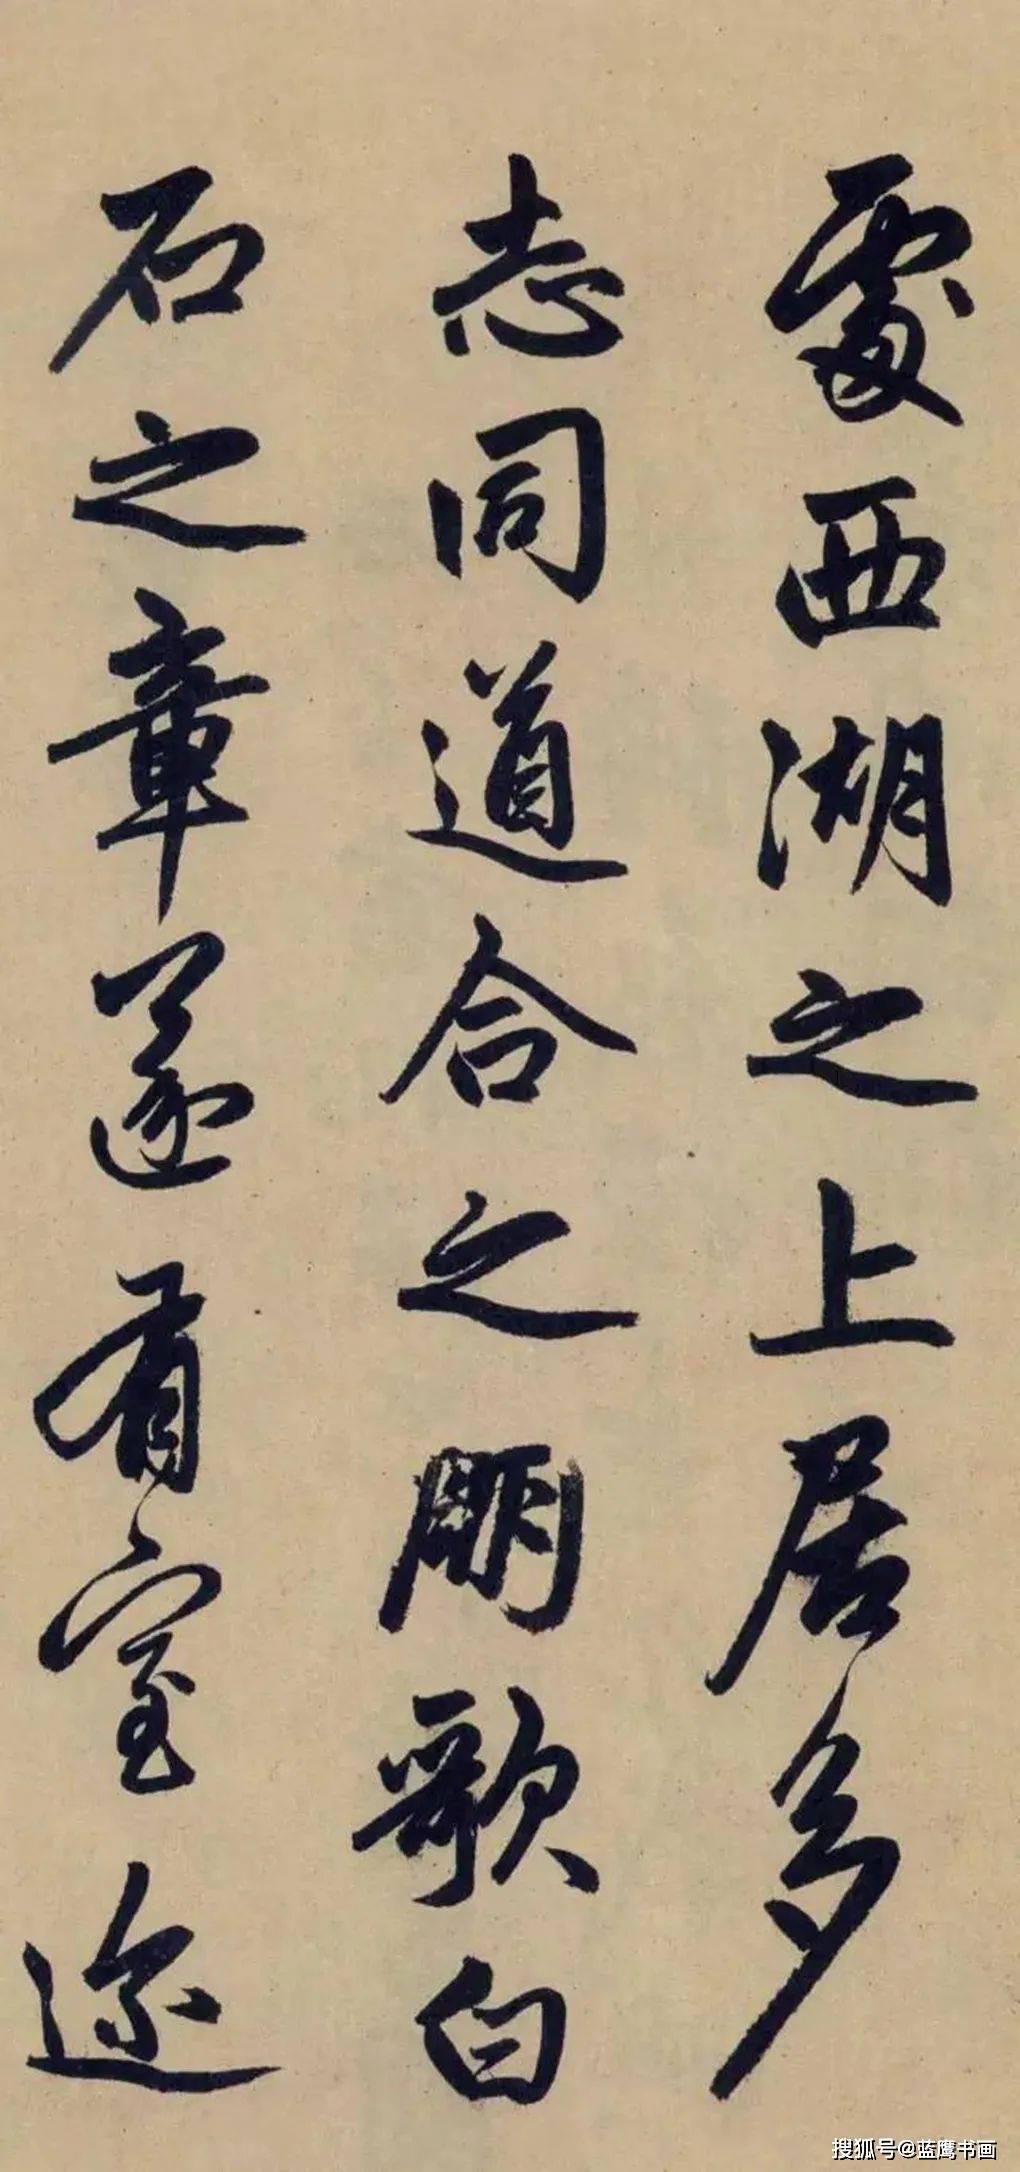 處西湖之上居多
志同道合之朋歌白
石之章遂有室迩
搜狐号@蓝鹰书画